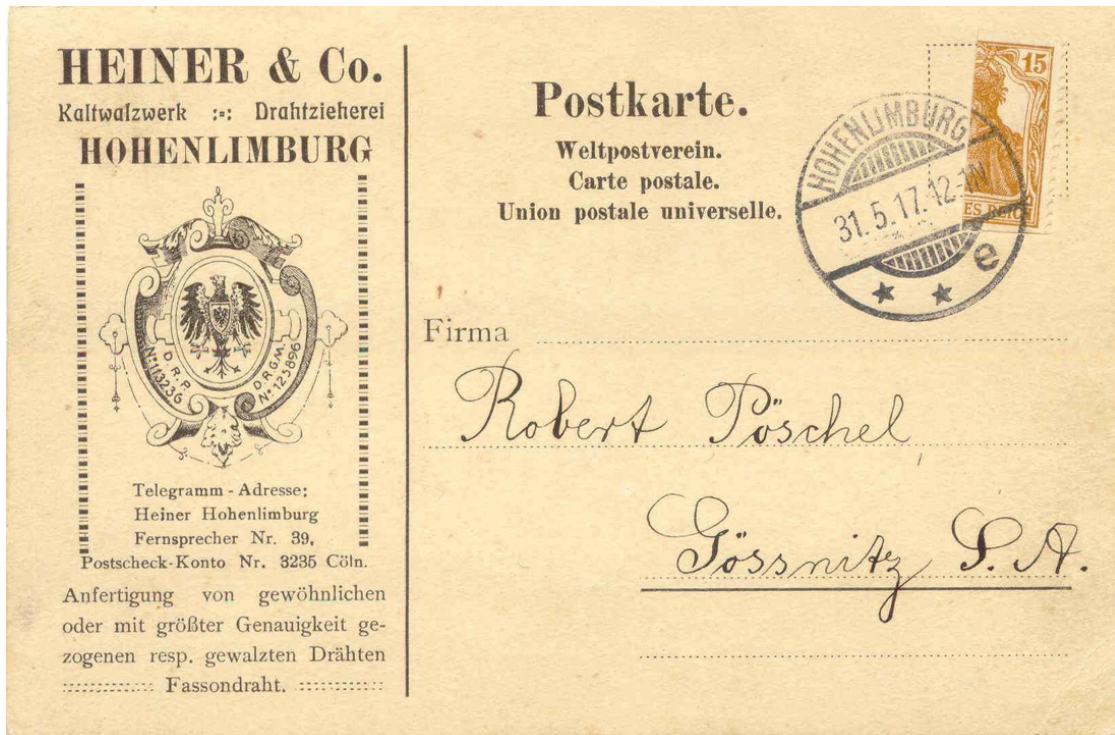 HEINER & Co.
Kaltwalzwerk :=: Drahtzieherei
HOHENLIMBURG
D. R. P.
Nº 113236
D. R. G. M.
Nº 125896
Telegramm - Adresse:
Heiner Hohenlimburg
Fernsprecher Nr. 39,
Postscheck-Konto Nr. 3235 Cöln.
Anfertigung von gewöhnlichen
oder mit größter Genauigkeit ge-
zogenen resp. gewalzten Drähten
Fassondraht.
Postkarte.
Weltpostverein.
Carte postale.
Union postale universelle.
15
ES REICH
HOHENLIMBURG
31. 5. 17. 12-1N
* * e
Firma
Robert Pöschel
Gössnitz S. A.